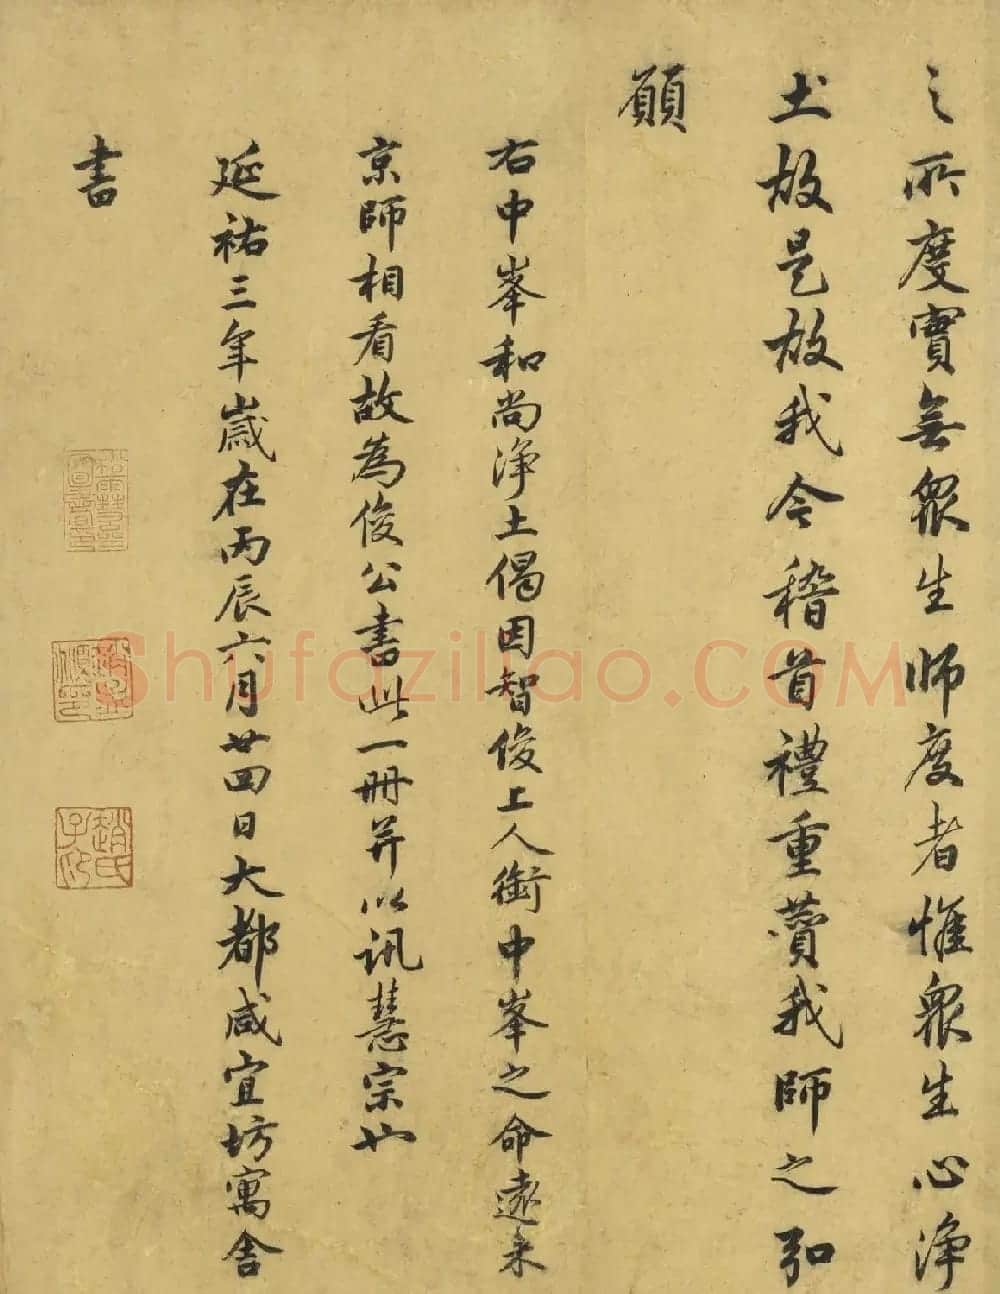 之所度實無眾生師度者惟眾生心淨
土故是故我今稽首禮重讚我師之弘
願
右中峯和尚淨土偈因智俊上人銜中峯之命遠來
京師相看故為俊公書此一冊并以訊慧宗也
延祐三年歲在丙辰六月廿四日大都咸宜坊寓舍
書
趙氏子昂
Shufaziliao.COM